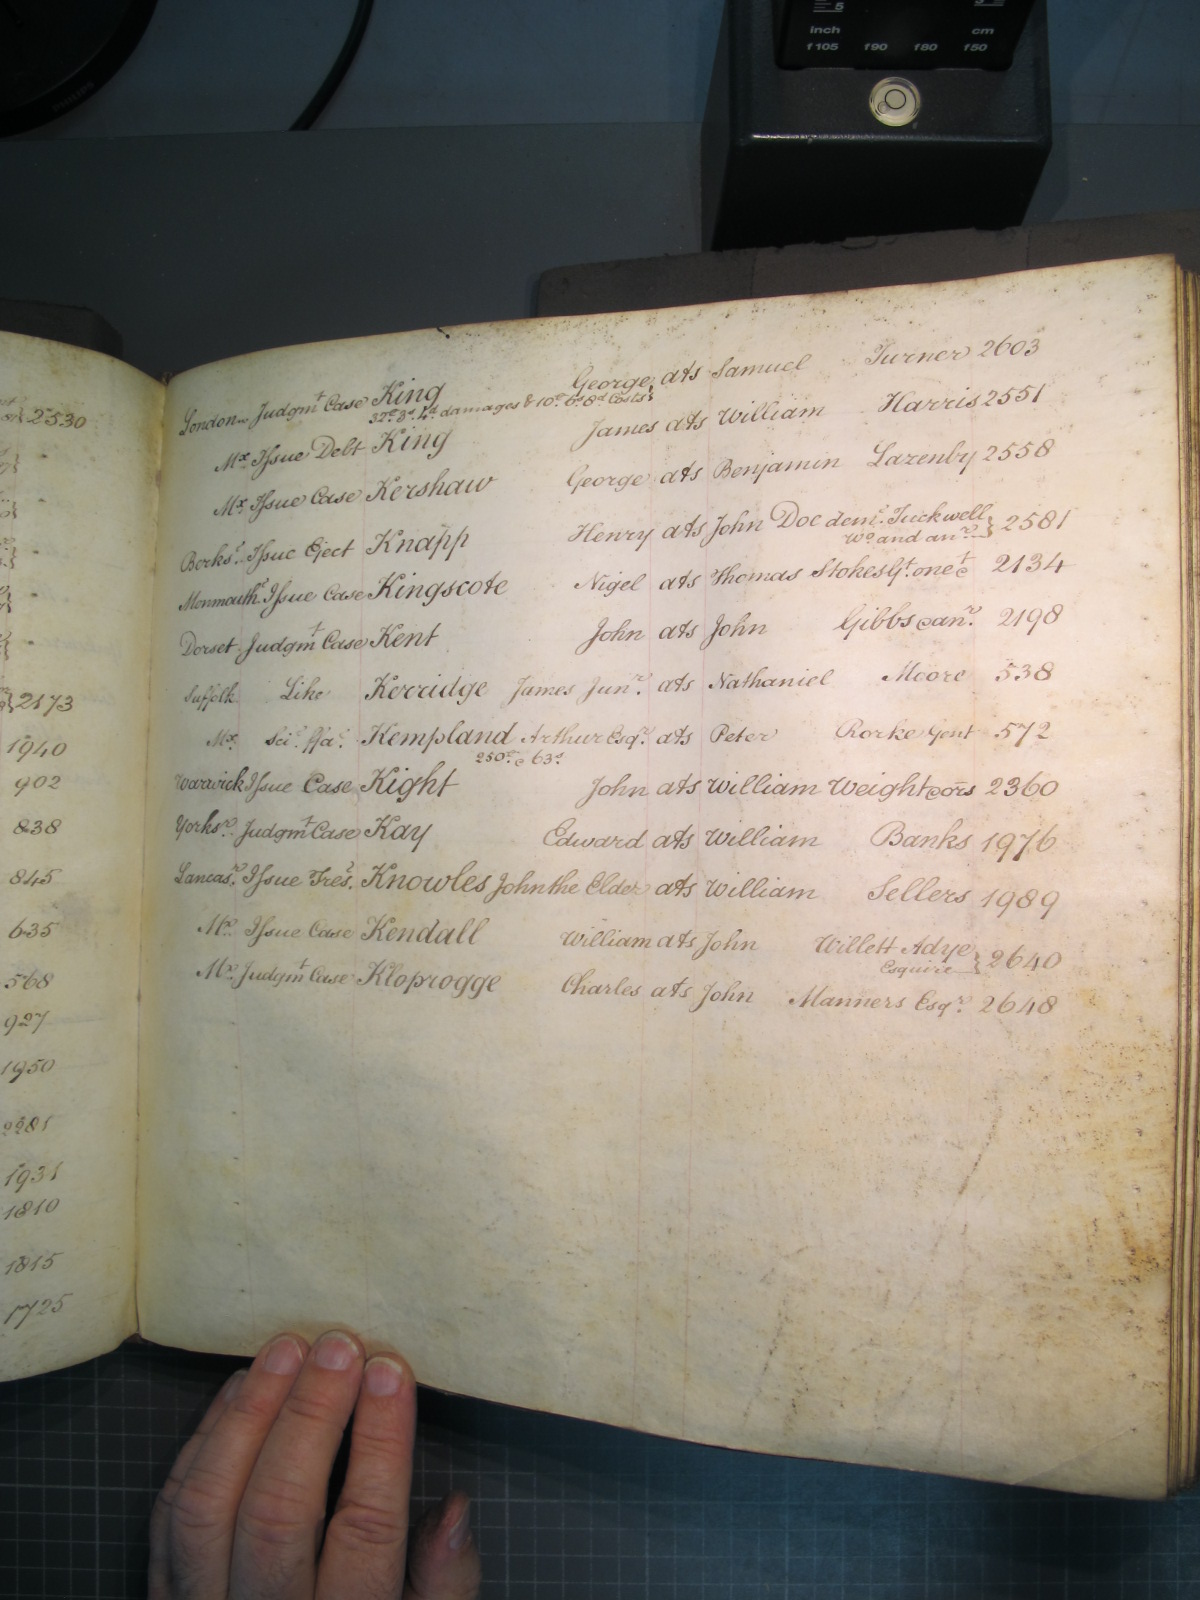 5
inch
cm
f105 f90 f80 f50
PHILIPS
2530
2173
1940
902
838
845
635
568
927
1950
2281
1931
1810
1815
1725
London Judgmt Case King George ats Samuel Turner 2603
32£ 3s 4d damages & 10£ 6s 8d Costs
Mx Issue Debt King James ats William Harris 2551
Mx Issue Case Kershaw George ats Benjamin Lazenby 2558
Berks: Issue Eject Knapp Henry ats John Doe dem: Tuckwell
Wo: and anr: 2581
Monmouth: Issue Case Kingscote Nigel ats Thomas Stokes Gt. one &ct 2134
Dorset Judgmt Case Kent John ats John Gibbs & anr: 2198
Suffolk Like Kerridge James Junr: ats Nathaniel Moore 538
Mx: Sci: ffa: Kempland Arthur Esqr: ats Peter Rorke Gent 572
250£ & 63s
Warwick Issue Case Kight John ats William Weight & ors 2360
Yorks: Judgmt Case Kay Edward ats William Banks 1976
Lancas: Issue Tres: Knowles John the Elder ats William Sellers 1989
Mx: Issue Case Kendall William ats John Willett Adye
Esquire 2640
Mx Judgmt Case Kloprogge Charles ats John Manners Esqr: 2648